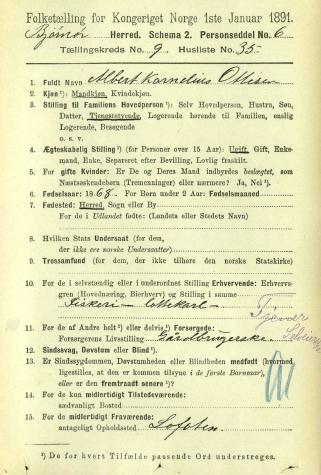 Folketælling for Kongeriget Norge 1ste Januar 1891.
Bjørnør Herred. Schema 2. Personseddel No. 6
Tællingskreds No. 9. Husliste No. 35.
1. Fuldt Navn Albert Kornelius Ottesen
2. Kjøn ¹): Mandkjøn, Kvindekjøn.
3. Stilling til Familiens Hovedperson ¹): Selv Hovedperson, Hustru, Søn,
Datter, Tjenestetyende, Logerende hørende til Familien, enslig
Logerende, Besøgende
o. s. v.
4. Ægteskabelig Stilling ¹) (for Personer over 15 Aar): Ugift, Gift, Enke-
mand, Enke, Separeret efter Bevilling, Lovlig fraskilt.
5. For gifte Kvinder: Er De og Deres Mand indbyrdes beslægtet, som
Næstsøskendebørn (Tremenninger) eller nærmere? Ja, Nei ¹).
6. Fødselsaar: 1868. For Børn under 2 Aar: Fødselsmaaned
7. Fødested: Herred, Sogn eller By
For de i Udlandet fødte: (Landets eller Stedets Navn)
8. Hvilken Stats Undersaat (for dem,
der ikke ere norske Undersaatter)
9. Trossamfund (for dem, der ikke tilhøre den norske Statskirke)
10. For de i selvstændig eller i underordnet Stilling Erhvervende: Erhvervs-
gren (Hovednæring, Bierhverv) og Stilling i samme
Fiskeri –
Tjener
11. For de af Andre helt ¹) eller delvis ¹) Forsørgede:
Forsørgerens Livsstilling Gårdbrugerske.
12. Sindssvag, Døvstum eller Blind ¹).
13. Er Sindssygdommen, Døvstumheden eller Blindheden medfødt (hvormed,
ligestilles, at den er kommen tilsyne i de første Barneaar),
eller er den fremtraadt senere ¹)?
14. For de kun midlertidigt Tilstedeværende:
sædvanligt Bosted
15. For de midlertidigt Fraværende:
antageligt Opholdssted Lofoten.
¹) De for hvert Tilfælde passende Ord understreges.